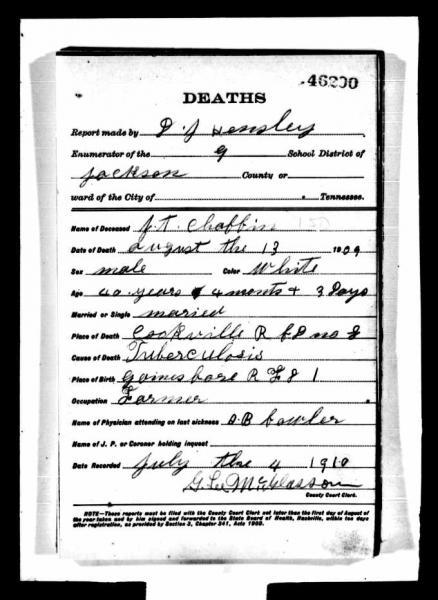 46200
DEATHS
Report made by D. J Hensley
Enumerator of the 9 School District of
Jackson County or
ward of the City of . Tennessee.
Name of Deceased J. T. Chaffin
Date of Death august the 13 1909
Sex male Color White
Age 40 years & 4 months + 3 days
Married or Single married
Place of Death Cookville R f D no 8
Cause of Death Tuberculosis
Place of Birth Gainesboro R F D 1
Occupation Farmer
Name of Physician attending on last sickness
Name of J. P. or Coroner holding inquest
Date Recorded July the 4 1910
McGlasson
County Court Clerk.
NOTE—These reports must be filed with the County Court Clerk not later than the first day of August of
the year taken and by him signed and forwarded to the State Board of Health, Nashville, within ten days
after registration, as provided by Section 3, Chapter 341, Acts 1909.